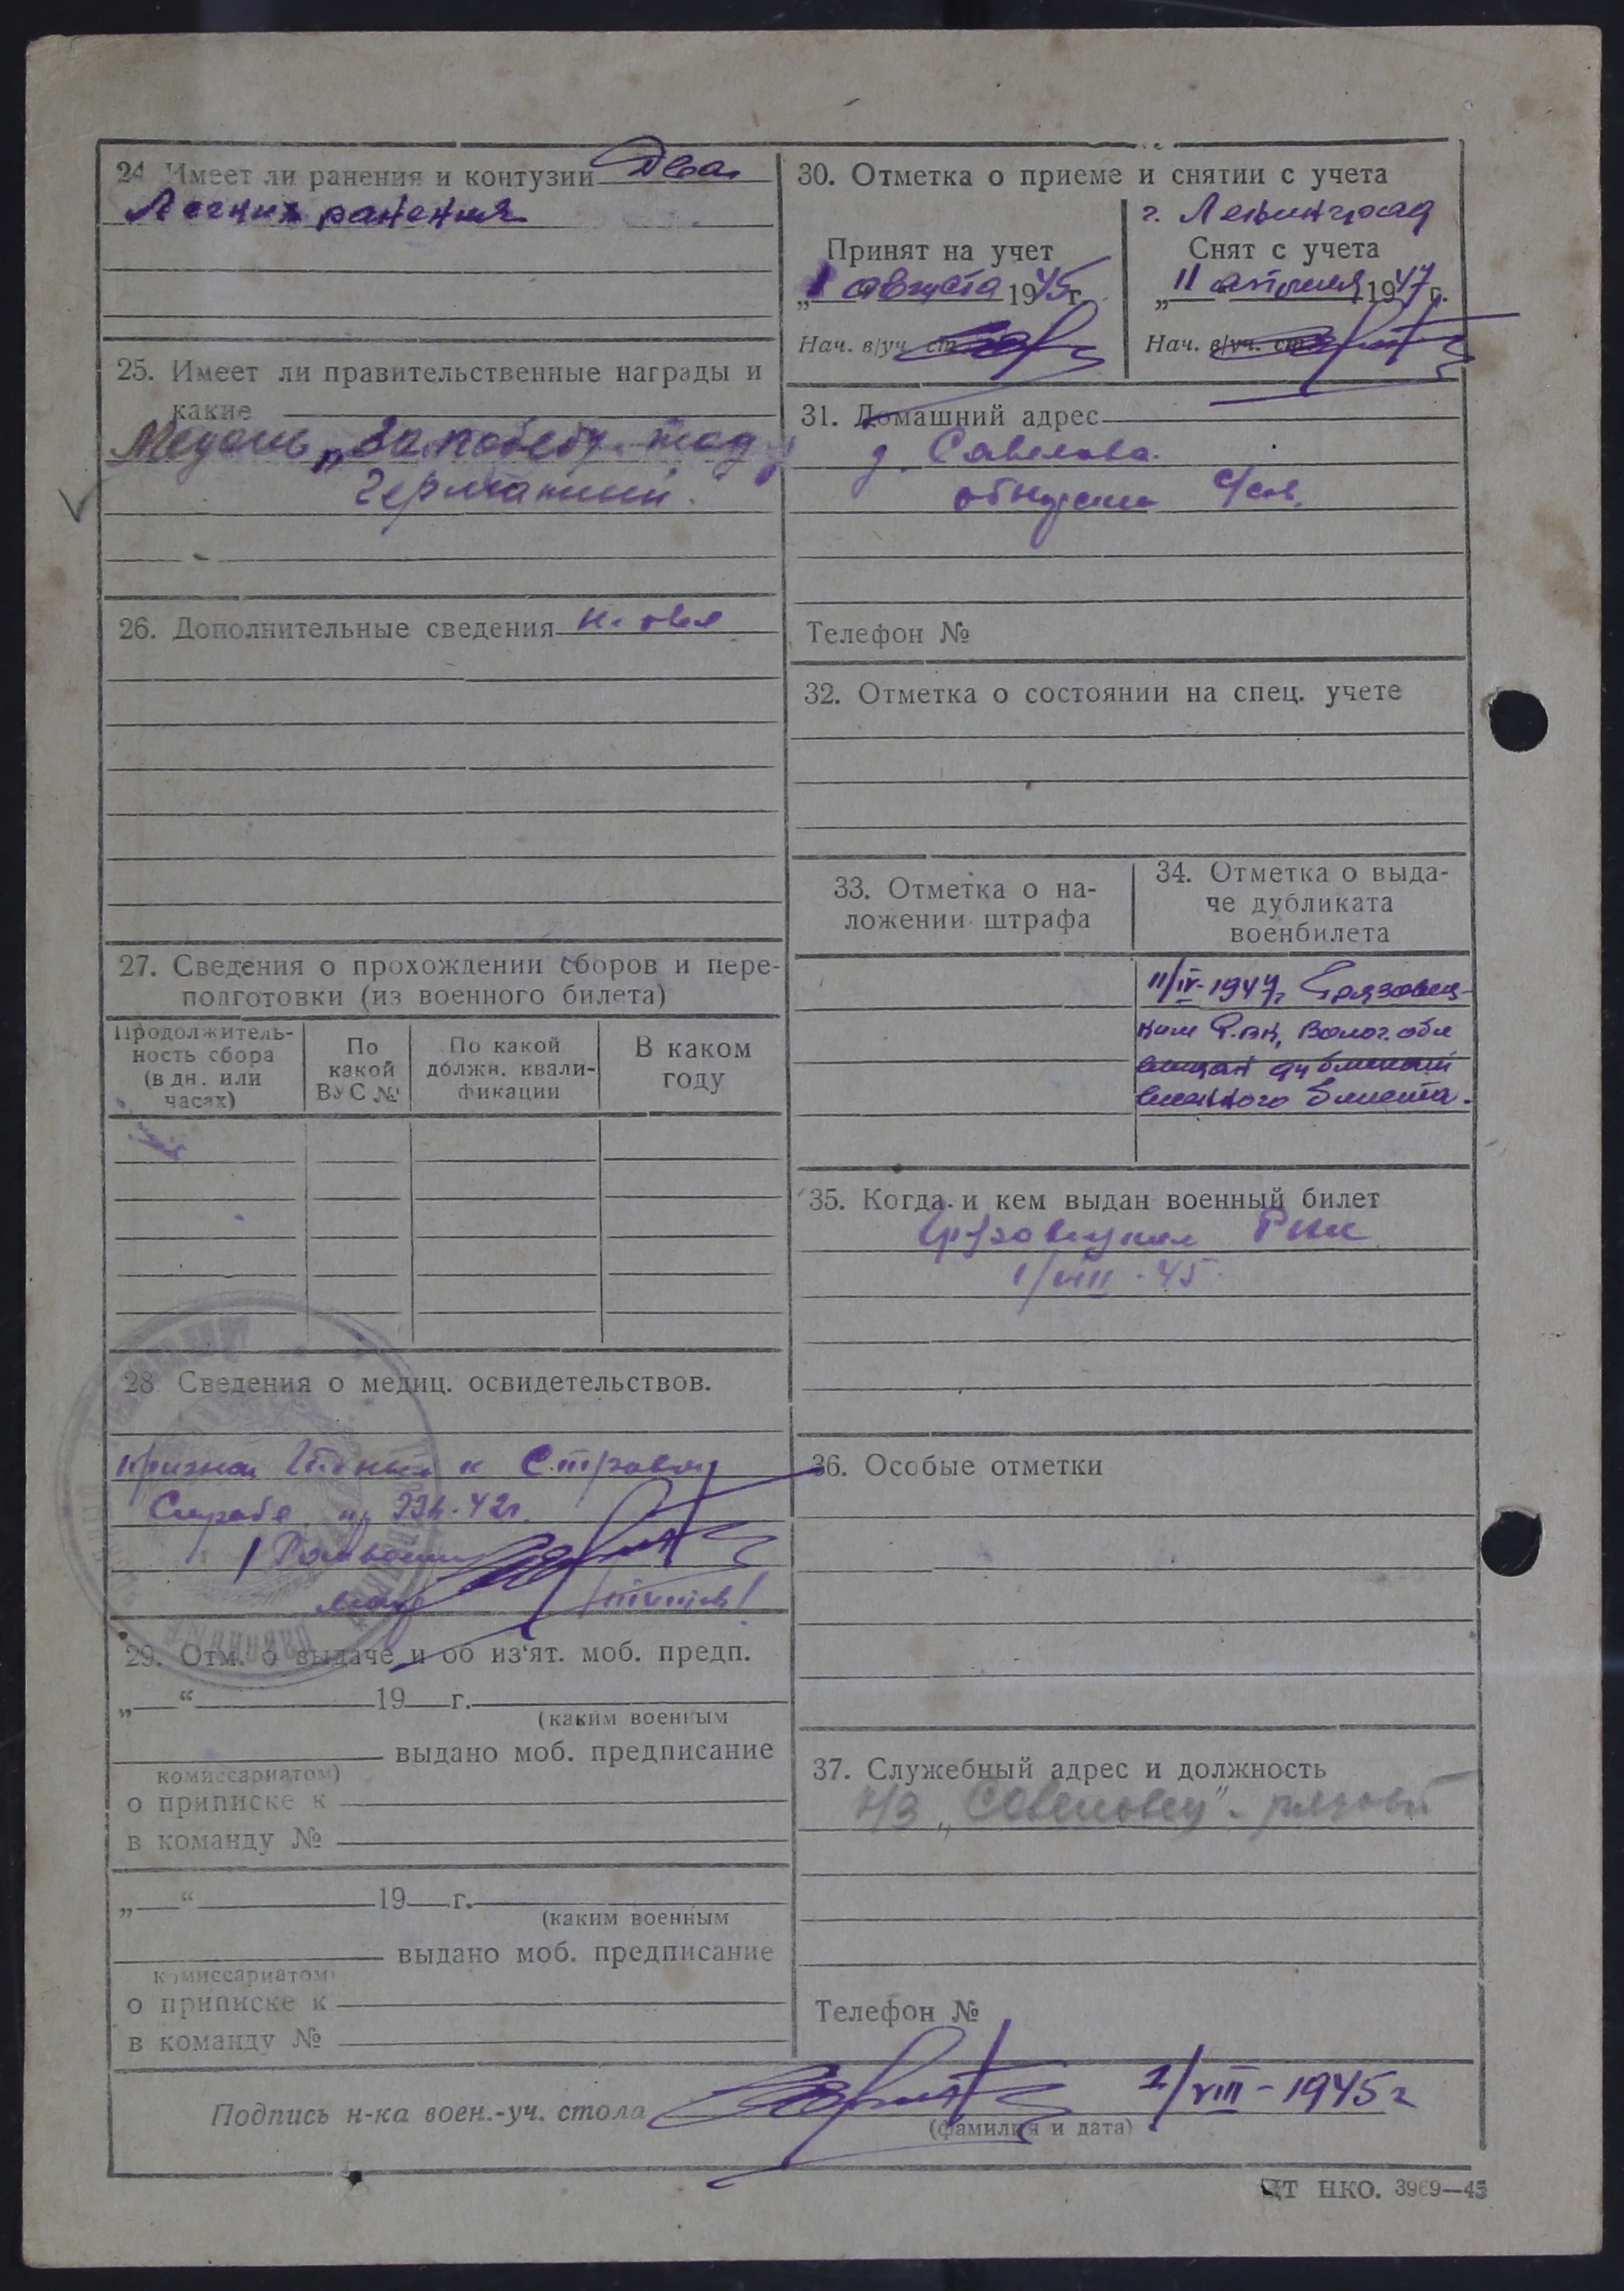 24. Имеет ли ранения и контузии Два
Легких ранения
25. Имеет ли правительственные награды и
какие
Медаль „За победу над
Германией.
26. Дополнительные сведения
27. Сведения о прохождении сборов и пере-
подготовки (из военного билета)
Продолжитель-
ность сбора
(в дн. или
часах)
По
какой
ВУС №
По какой
должн. квали-
фикации
В каком
году
28. Сведения о медиц. освидетельствов.
признан Годным к Строевой
Службе 42г.
29. Отм. о выдаче и об из‘ят. моб. предп.
„ “ 19 г.
(каким военным
выдано моб. предписание
комиссариатом)
о приписке к
в команду №
„ “ 19 г.
(каким военным
выдано моб. предписание
комиссариатом)
о приписке к
в команду №
30. Отметка о приеме и снятии с учета
Принят на учет
„1 августа 1945г.
Нач. в/уч. ст.
г. Ленинград
Снят с учета
„11 апреля 1947г.
Нач. в/уч. ст.
31. Домашний адрес
д. Савелова
с/сов.
Телефон №
32. Отметка о состоянии на спец. учете
33. Отметка о на-
ложении штрафа
34. Отметка о выда-
че дубликата
военбилета
11/IV-1947г. Грязовец-
ким Р.вк, Волог. обл
выдан дубликат
военного билета.
35. Когда и кем выдан военный билет
Грязовецким РВК
1/VIII-45
36. Особые отметки
37. Служебный адрес и должность
к/з „Савеловец" - рядовой
Телефон №
Подпись н-ка воен.-уч. стола 1/VIII-1945г
(фамилия и дата)
ЦТ НКО. 3969—45